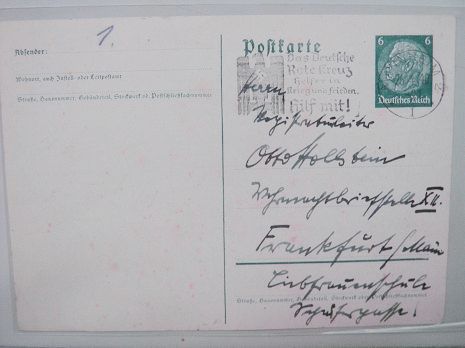 1.
Postkarte
Absender:
Wohnort, auch Zustell- oder Leitpostamt
Straße, Hausnummer, Gebäudeteil, Stockwerk od. Postschließfachnummer
Das Deutsche
Rote Kreuz
Helfer in
Krieg und Frieden.
Hilf mit!
6 6
Deutsches Reich
Herrn
Registraturleiter
Otto Hollstein
Wehrmachtbriefstelle XII.
Frankfurt/Main
Liebfrauenschule
Straße, Hausnummer, Gebäudeteil, Stockwerk oder Postschließfachnummer
Schäfergasse.